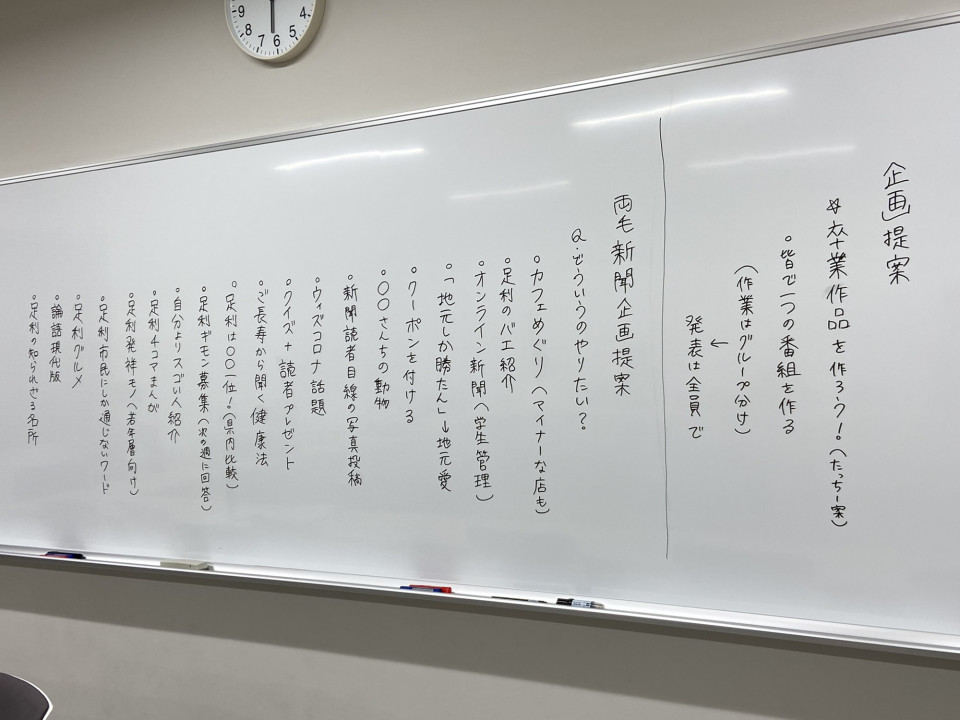 企画提案
☆卒業作品を作ろう!。(たっちー案)
。皆で一つの番組を作る
(作業はグループ分け)
↓
発表は全員で
両毛新聞企画提案
Q.どういうのやりたい?
。カフェめぐり(マイナーな店も)
。足利のバエ紹介
。オンライン新聞(学生管理)
。「地元しか勝たん」→地元愛
。クーポンを付ける
。〇〇さんちの動物
。新聞読者目線の写真投稿
。ウィズコロナ話題
。クイズ+読者プレゼント
。ご長寿から聞く健康法
。足利は〇〇一位!。(県内比較)
。足利ギモン募集(次の週に回答)
。自分よりスゴい人紹介
。足利4コマまんが
。足利発祥モノ(若年層向け)
。足利市民にしか通じないワード
。足利グルメ
。論語現代版
。足利の知られざる名所
9 8 7 6 5 4